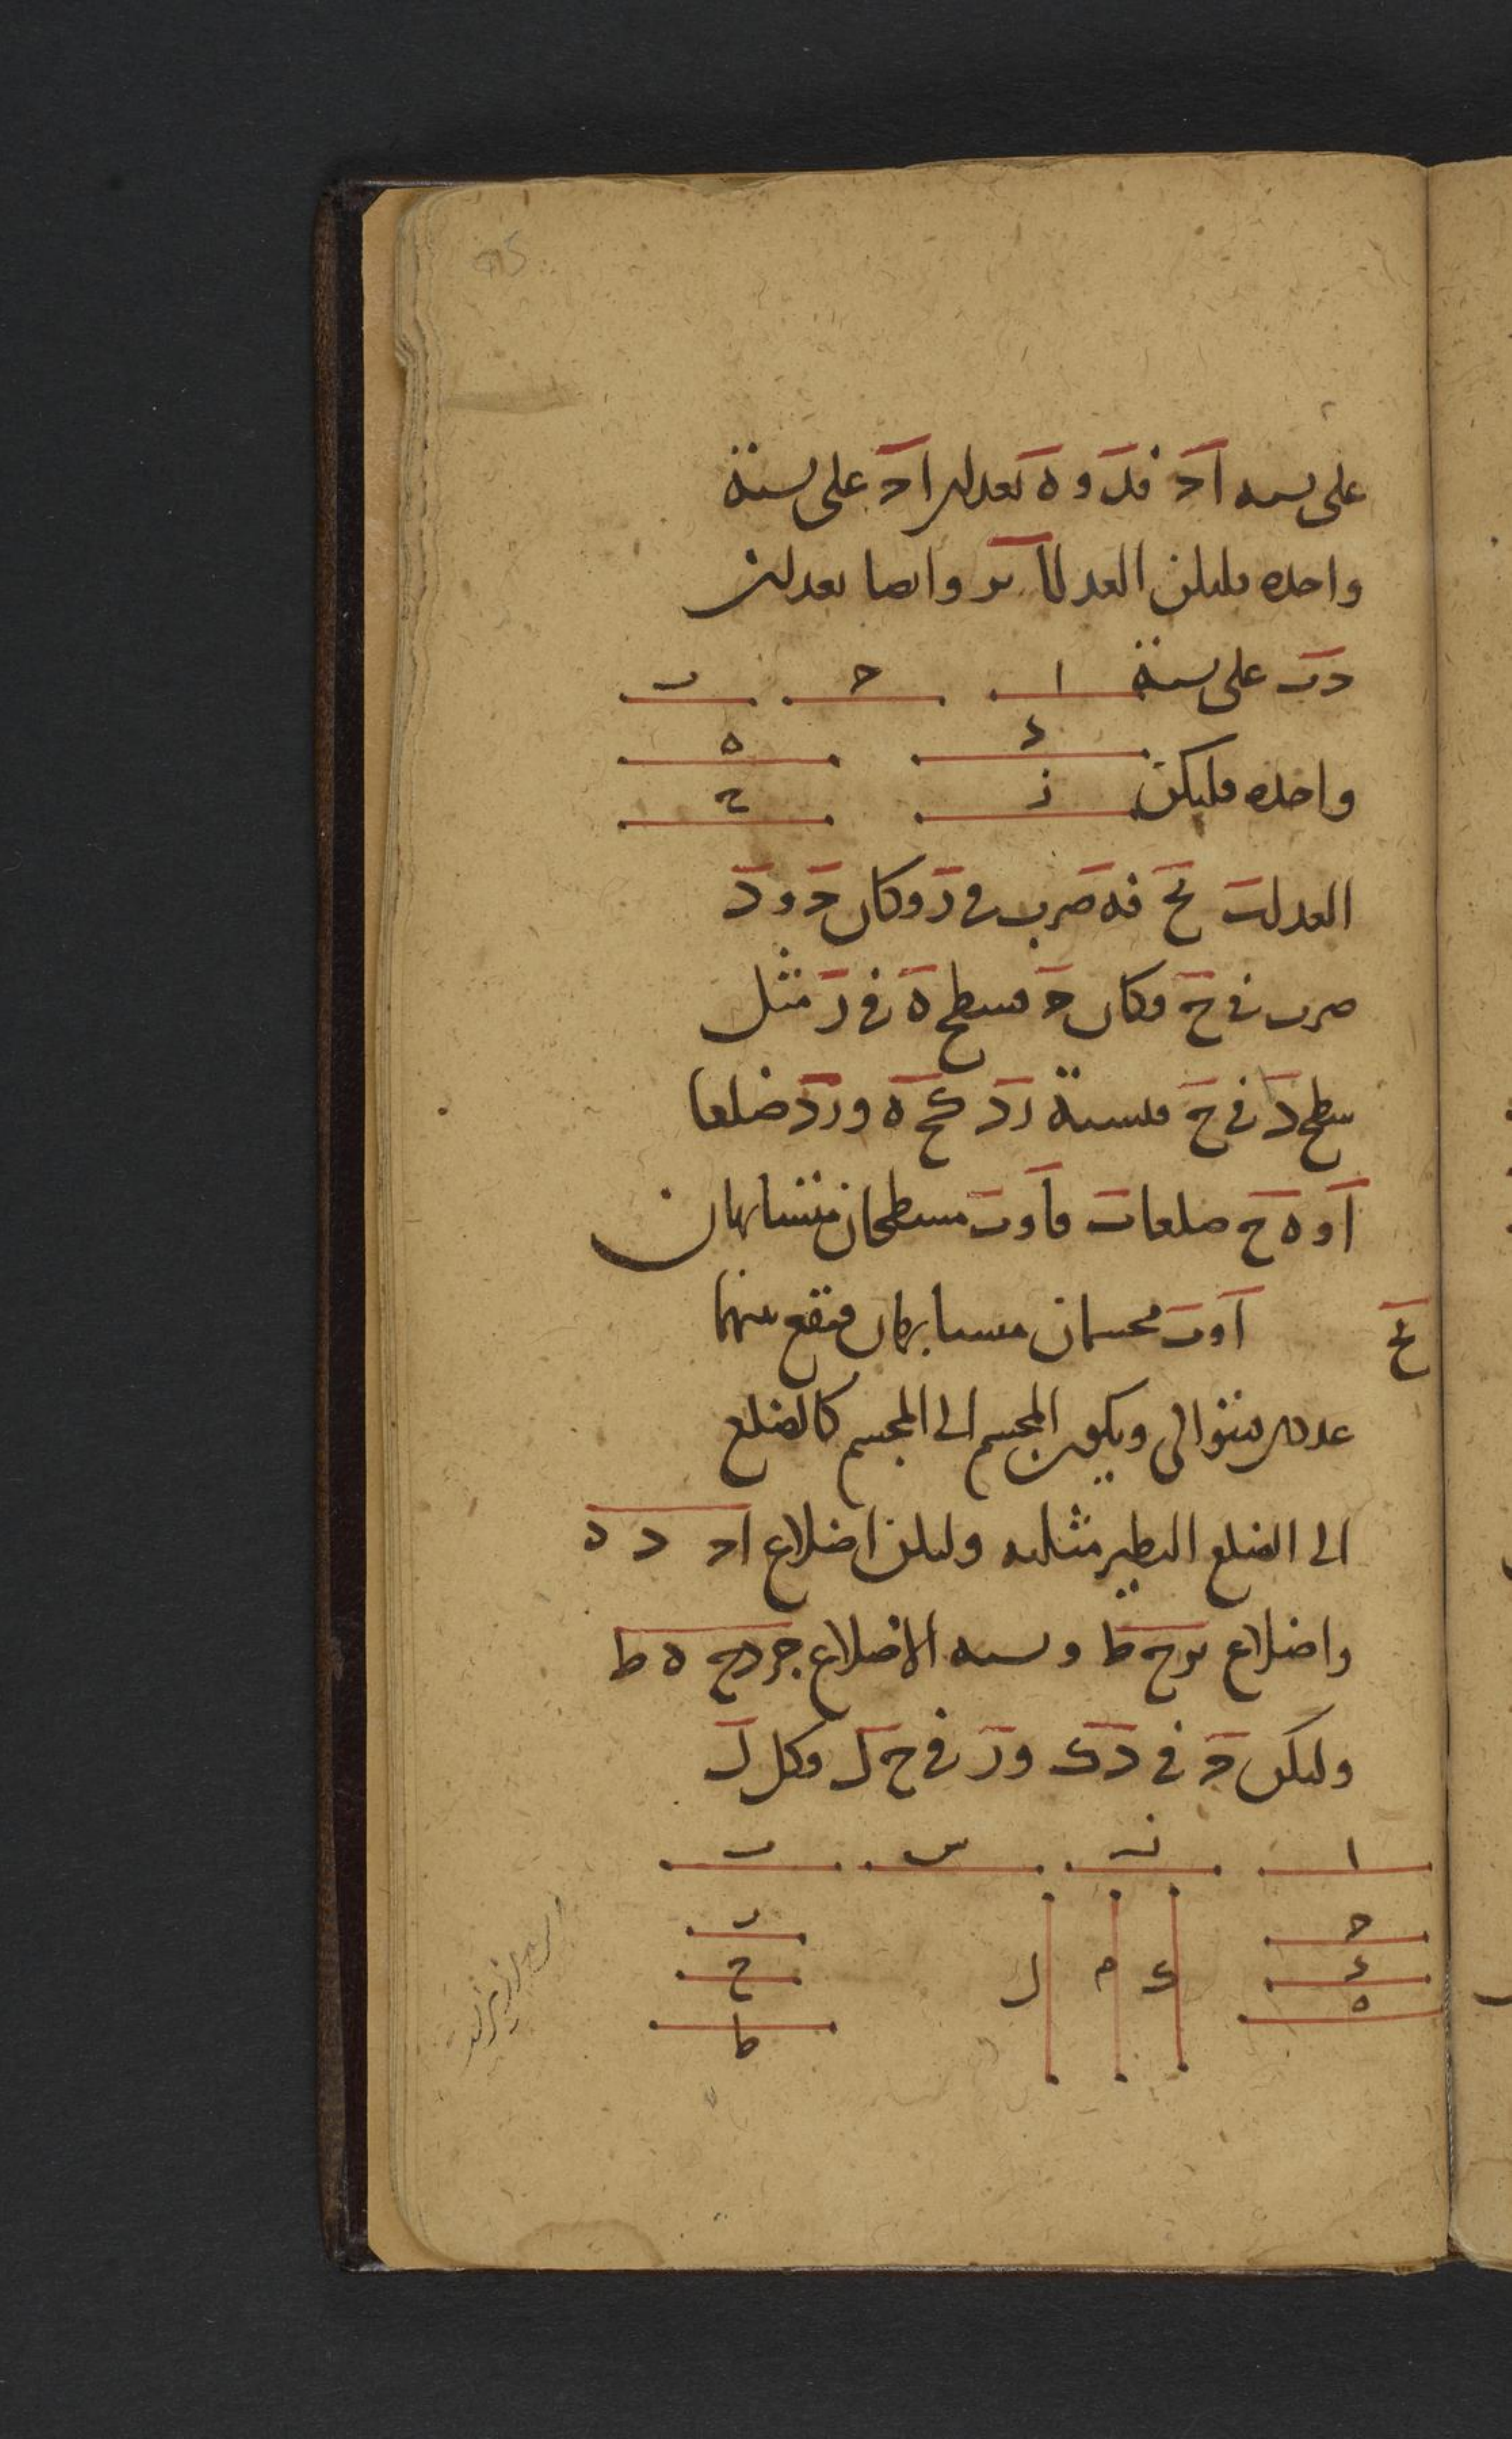 على نسبة اج فد و ه تعدان اج على نسبة
واحدة فليكن العد لآ ز وايضا تعدان
جب على نسبة
ا ج ب
د ه
واحدة فليكن
ز ح
العد لب ح فه ضرب في ز وكان ج و د
ضرب في ح فكان ج فسطح ه في ز مثل
سطح د في ح فنسبة ز د كح ه و زد ضلعا
ا و ه ح ضلعا ب فا و ب مسطحان متشابهان
يح
ا و ب مجسمان متشابهان فيقع بينهما
عددان متوالي ويكون المجسم الى المجسم كالضلع
الى الضلع النظير مثلثه وليكن اضلاع ا ج د ه
واضلاع ب ز ح ط ونسبة الاضلاع جز دح ه ط
وليكن ج في د ك و ز في ح ل فكل ل
ا ن س ب
ج ز
د ح
ه ط
ك م ل